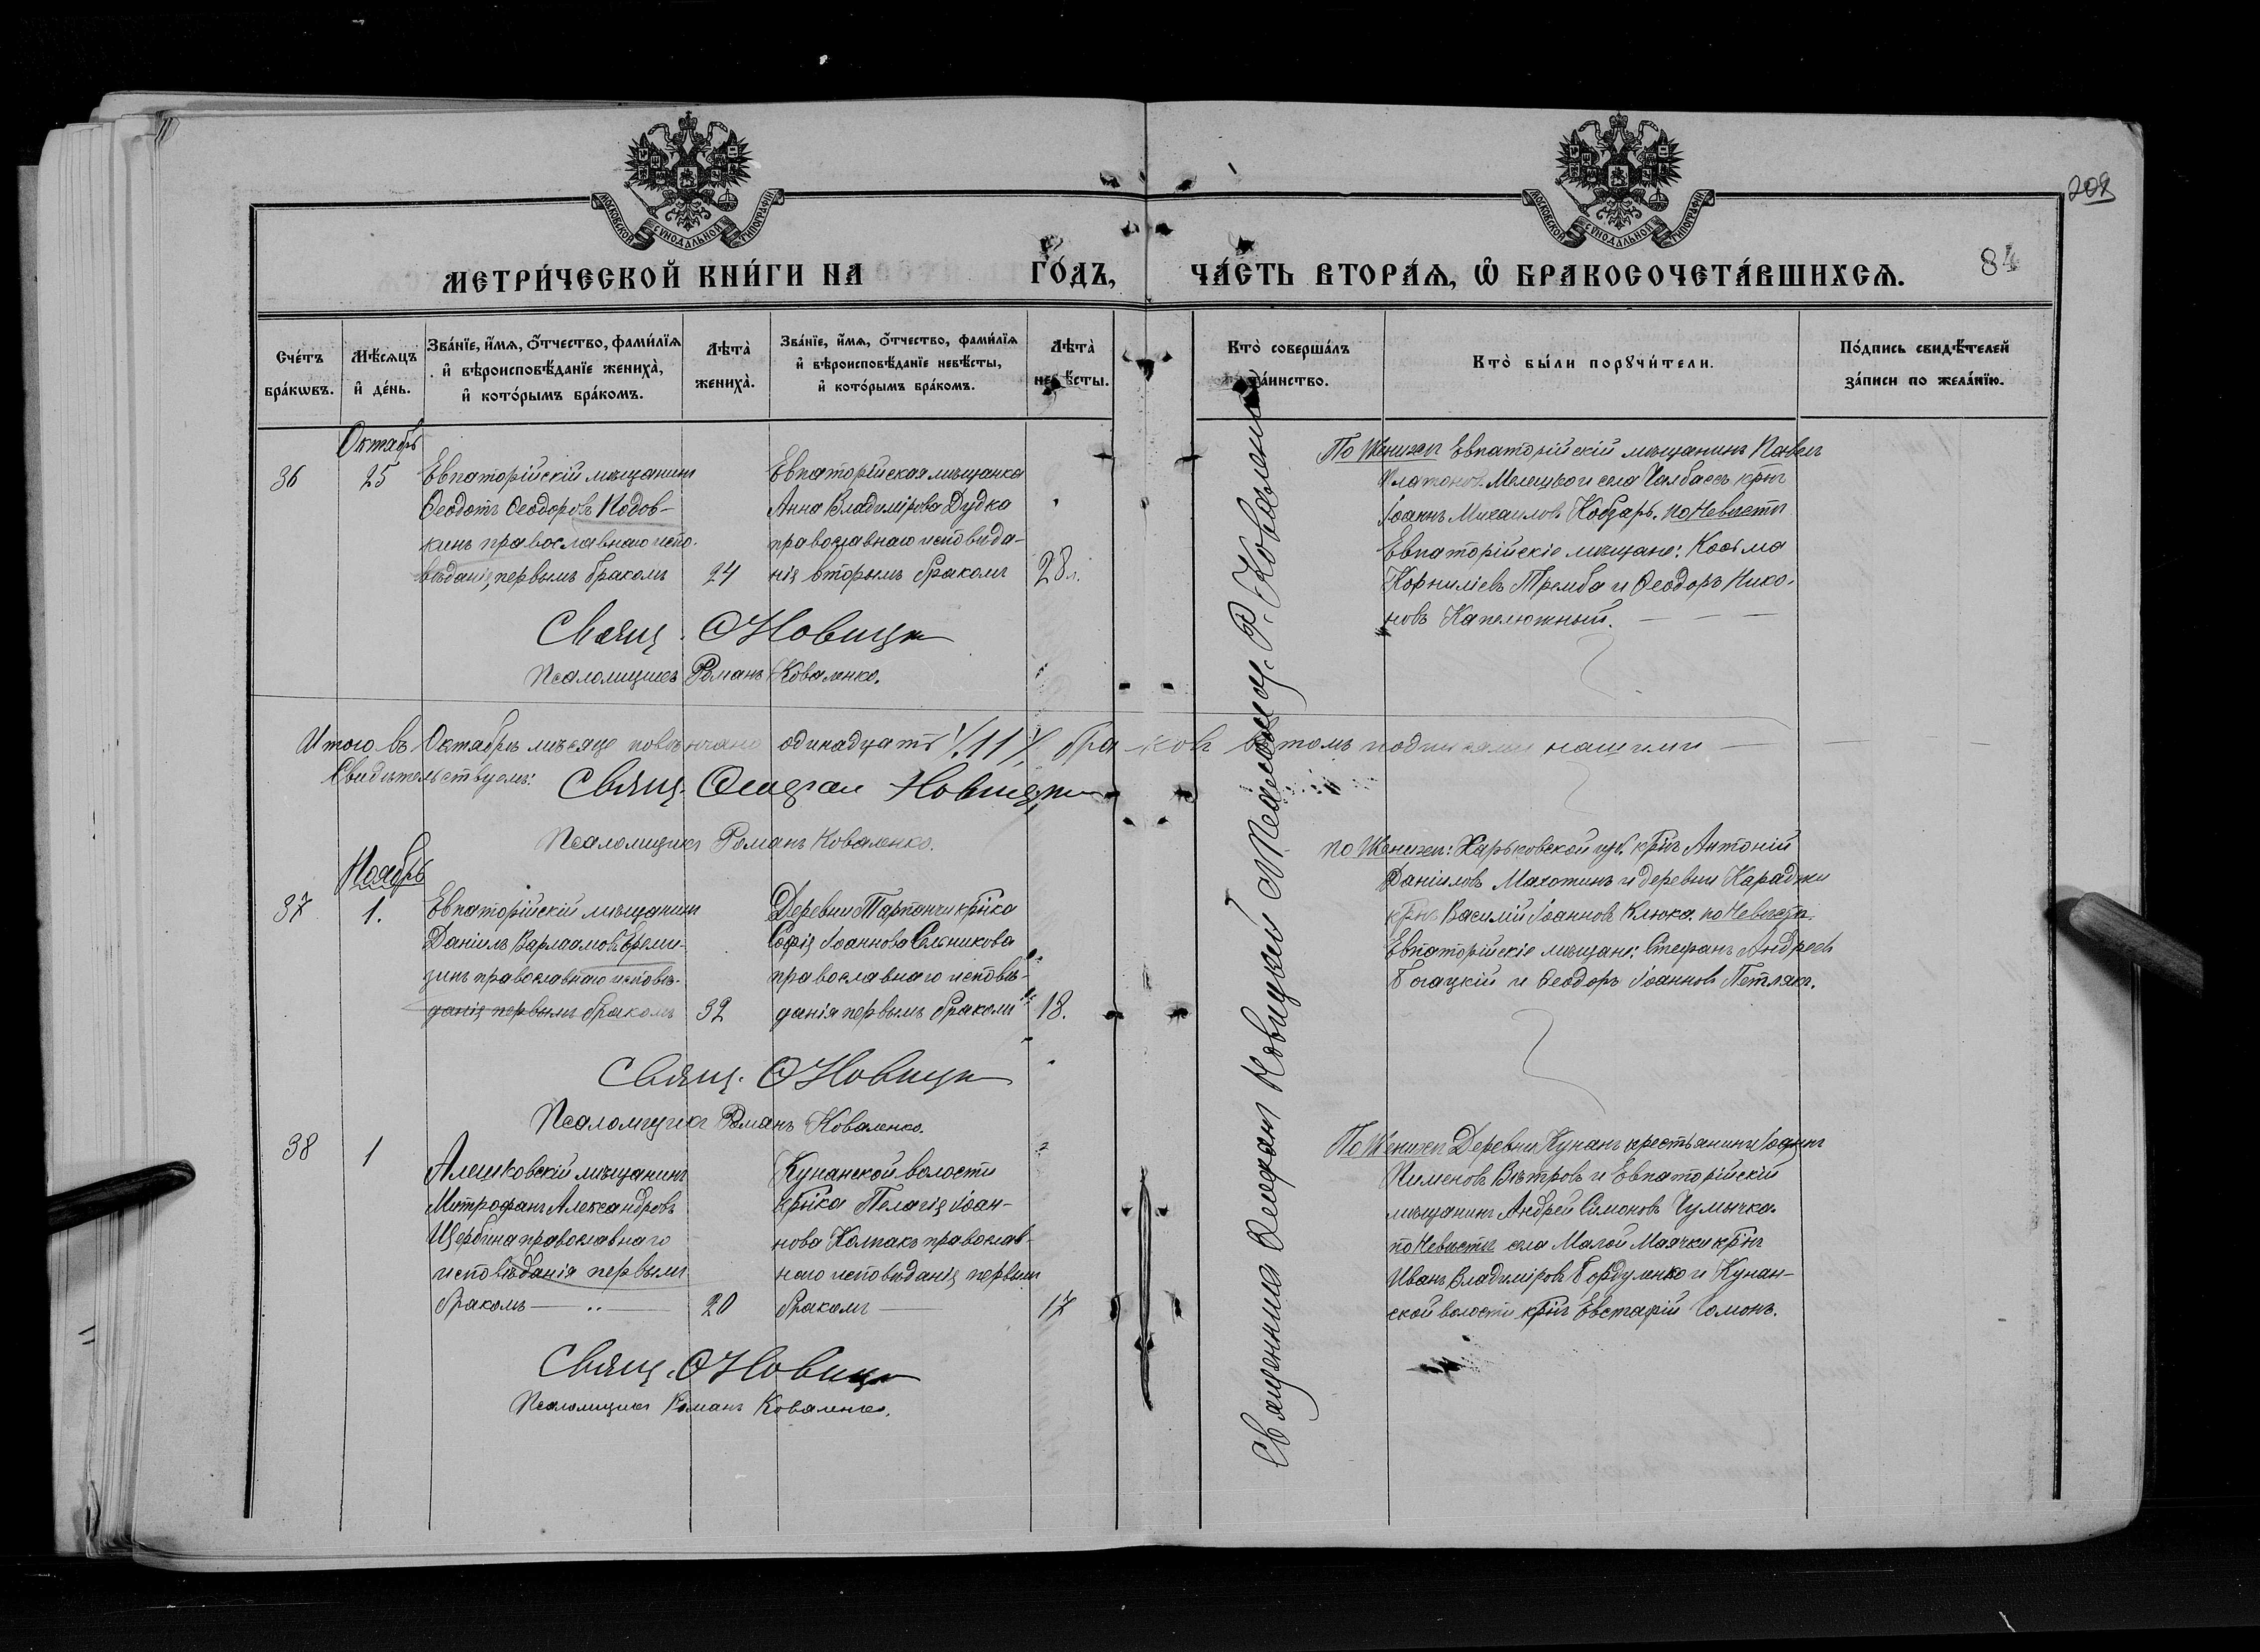 МОСКОВСКОЙ СѴНОДАЛЬНОЙ ТИПОГРАФІИ
МОСКОВСКОЙ СѴНОДАЛЬНОЙ ТИПОГРАФІИ
209
МЕТРИ́ЧЕСКОЙ КНИ́ГИ НА ГО́ДЪ, ЧА́СТЬ ВТОРА́Ѧ, Ѽ БРАКОСОЧЕТА́ВШИХСѦ.
84
Сче́тъ бра́кѡвъ.
Мѣ́сяцъ и҆ де́нь.
Зва́нїе, и҆́мѧ, ѻ҆́тчество, фами́лїѧ и҆ вѣроисповѣ́данїе жениха̀, и҆ кото́рымъ бра́комъ.
Лѣта̀ жениха̀.
Зва́нїе, и҆́мѧ, ѻ҆́тчество, фами́лїѧ и҆ вѣроисповѣ́данїе невѣ́сты, и҆ кото́рымъ бра́комъ.
Лѣта̀ невѣ́сты.
Кто̀ соверша́лъ та́инство.
Кто̀ бы́ли порꙋчи́тели.
По́дпись свидѣ́телей за́писи по жела́нїю.
Октябрь
36
25
Евпаторійскій мѣщанинъ
Ѳеодотъ Ѳеодоровъ Подов-
кинъ православнаго испо-
вѣданія, первымъ бракомъ
24
Евпаторійская мѣщанка
Анна Владимірова Дудка
православнаго исповѣда-
нія вторымъ бракомъ
28 л.
По Женихѣ Евпаторійскій мѣщанинъ Павелъ
Платоновъ Мелецкой села Чалбасъ крнъ
Іоаннъ Михаиловъ Кобзарь. по Невѣстѣ
Евпаторійскіе мѣщане: Косьма
Корниліевъ Тремба и Ѳеодоръ Нико-
новъ Капелюжный.
Свящ. С Новицк
Псаломщикъ Романъ Коваленко.
Итого въ Октябрѣ мѣсяце повѣнчано одинадцать /11/ бра-ковъ въ томъ подписями нашими
Свидѣтельствуемъ:
Свящ. Стефан Новицки
Псаломщикъ Романъ Коваленко.
Священникъ Стефан Новицкій Псаломщ. Р. Коваленко
Ноябрь
37
1.
Евпаторійскій мѣщанинъ
Даніилъ Варлаамовъ Ереми-
зинъ православнаго исповѣ-
данія первымъ бракомъ
32
Деревни Тарпанчи кр꙯нка
Софія Іоаннова Сленикова
православнаго исповѣ-
данія первымъ бракомъ
18.
По Женихѣ: Харьковской губ. крнъ Антоній
Даніиловъ Махотинъ и деревни Караджи
крнъ Василій Іоанновъ Клюка по Невѣстѣ
Евпаторійскіе мѣщане: Стефанъ Андреевъ
Богацкій и Ѳеодоръ Іоанновъ Петлякъ.
Свящ. С Новицк
Псаломщикъ Романъ Коваленко.
38
1
Алешковскій мѣщанинъ
Митрофанъ Александровъ
Щербина православнаго
исповѣданія первымъ
бракомъ
20
Кунанской волости
крнка Пелагія Іоан-
нова Колпакъ православ-
наго исповѣданія первымъ
бракомъ
17
По Женихѣ Деревни Кунанъ крестьянинъ Іоаннъ
Пименовъ Вѣтровъ и Евпаторійскій
мѣщанинъ Андрей Симоновъ Чумычка.
по Невѣстѣ села Малой Маячки крнъ
Иванъ Владиміровъ Гордуленко и Кунан-
ской волости крнъ Евстафій Гомонъ.
Свящ. С Новицк
Псаломщикъ Романъ Коваленко.